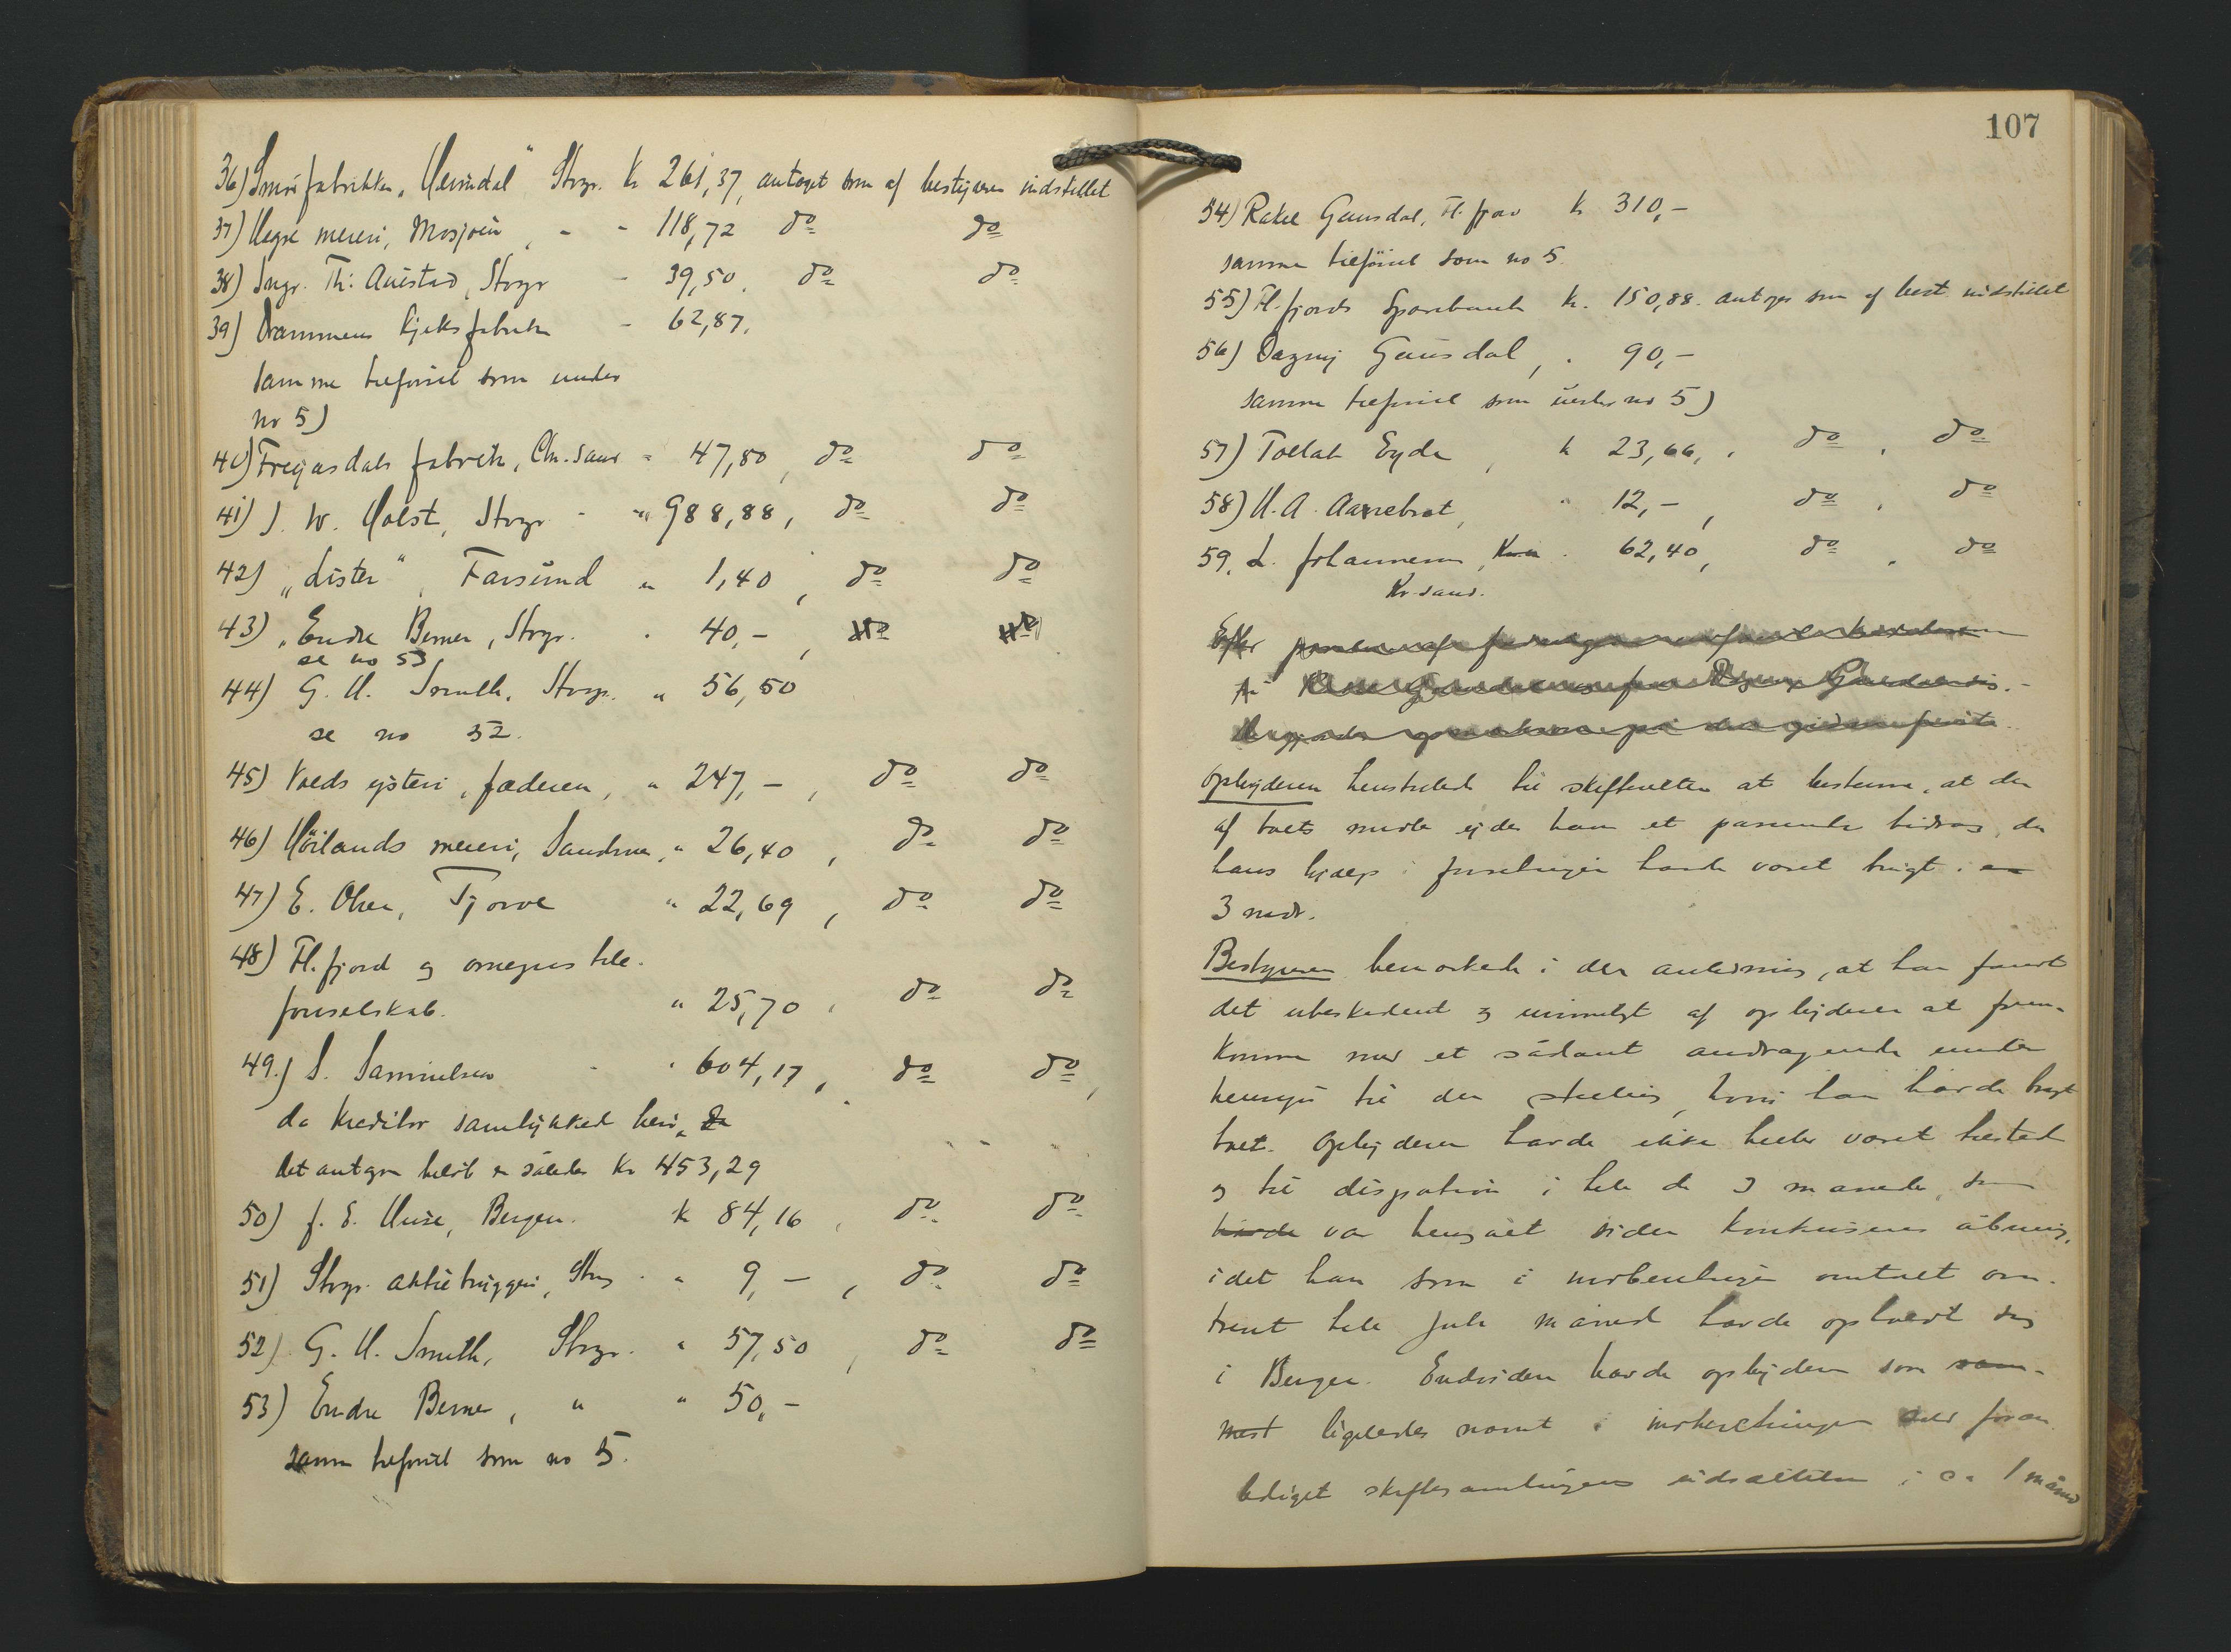 36) Smörfabrikken „Heimdal" Stvgr. kr 261,37, antaget som af bestyreren indstillet
37) Hegge meieri, Mosjøen, " " 118,72 do do
38) Ingv. Th: Auestad, Stvgr " 39,50, do do
39) Drammens kjeksfabrik " 62,87,
samme tilföiel som under
no 5)
40) Fregasdals fabrik, Chr.sand " 47,80, do do
41) J. W. Holst, Stvgr " 988,88, do do
42) „Lister", Farsund " 1,40, do do
43) „Endre Berner, Stvgr. " 40,-,
se no 53
44) G. H. Smith, Stvgr. " 56,50
se no 52.
45) Volds ysteri, Jæderen, " 247,-, do do
46) Höilands meieri, Sandnes, " 26,40, do do
47) E. Olsen, Tjorve " 22,69, do do
48) Fl.fjord og omegns tele-
fonselskab. " 25,70, do do
49.) S. Samuelsen " 604,17, do do,
da kreditor samtykked heri,
Det antagne beløb er således kr 453,29
50) J. E. Huse, Bergen. kr 84,16, do do
51) Stvgr. aktiebryggeri, Stvg " 9,-, do do
52) G. H. Smith, Stvgr. " 57,50, do do
53) Endre Berner, " " 50,-
samme tilföiel som no 5.
107
54) Rakel Gausdal, Fl.fjord kr 310,-
samme tilföiel som no 5.
55) Fl.fjords Sparebank kr. 150,88. antages som af best. indstillet
56) Dagny Gausdal, " 90,-
samme tilföiel som under no 5)
57) Tollak Eyde, kr 23,66, do, do
58) H. A. Aarrebrot, " 12,-, do, do
59. L. Johannesen, " 62,40, do, do
Kr.sand.
Efter
Opbyderen henstilled til skifteretten at bestemme, at der
af boets midler ydes ham et passende bidrag, da
hans hjælp i forretningen havde været brugt i
3 mdr.
Bestyreren bemærkede i den anledning, at han fandt
det ubeskedent og urimeligt af opbyderen at frem-
komme med et sådant andragende under
hensyn til den stilling, hvori han havde bragt
boet. Opbyderen havde ikke heller været tilsted
og til disposition i hele de 3 måneder, som
havde var hengået siden konkursens åbning,
idet han som i indberetningen omtalt om-
trent hele juli måned havde opholdt sig
i Bergen. Endvidere havde opbyderen som sam-
med ligeledes nævnt i indberetningen foran-
lediget skiftesamlingens udsættelse i ca 1 måned